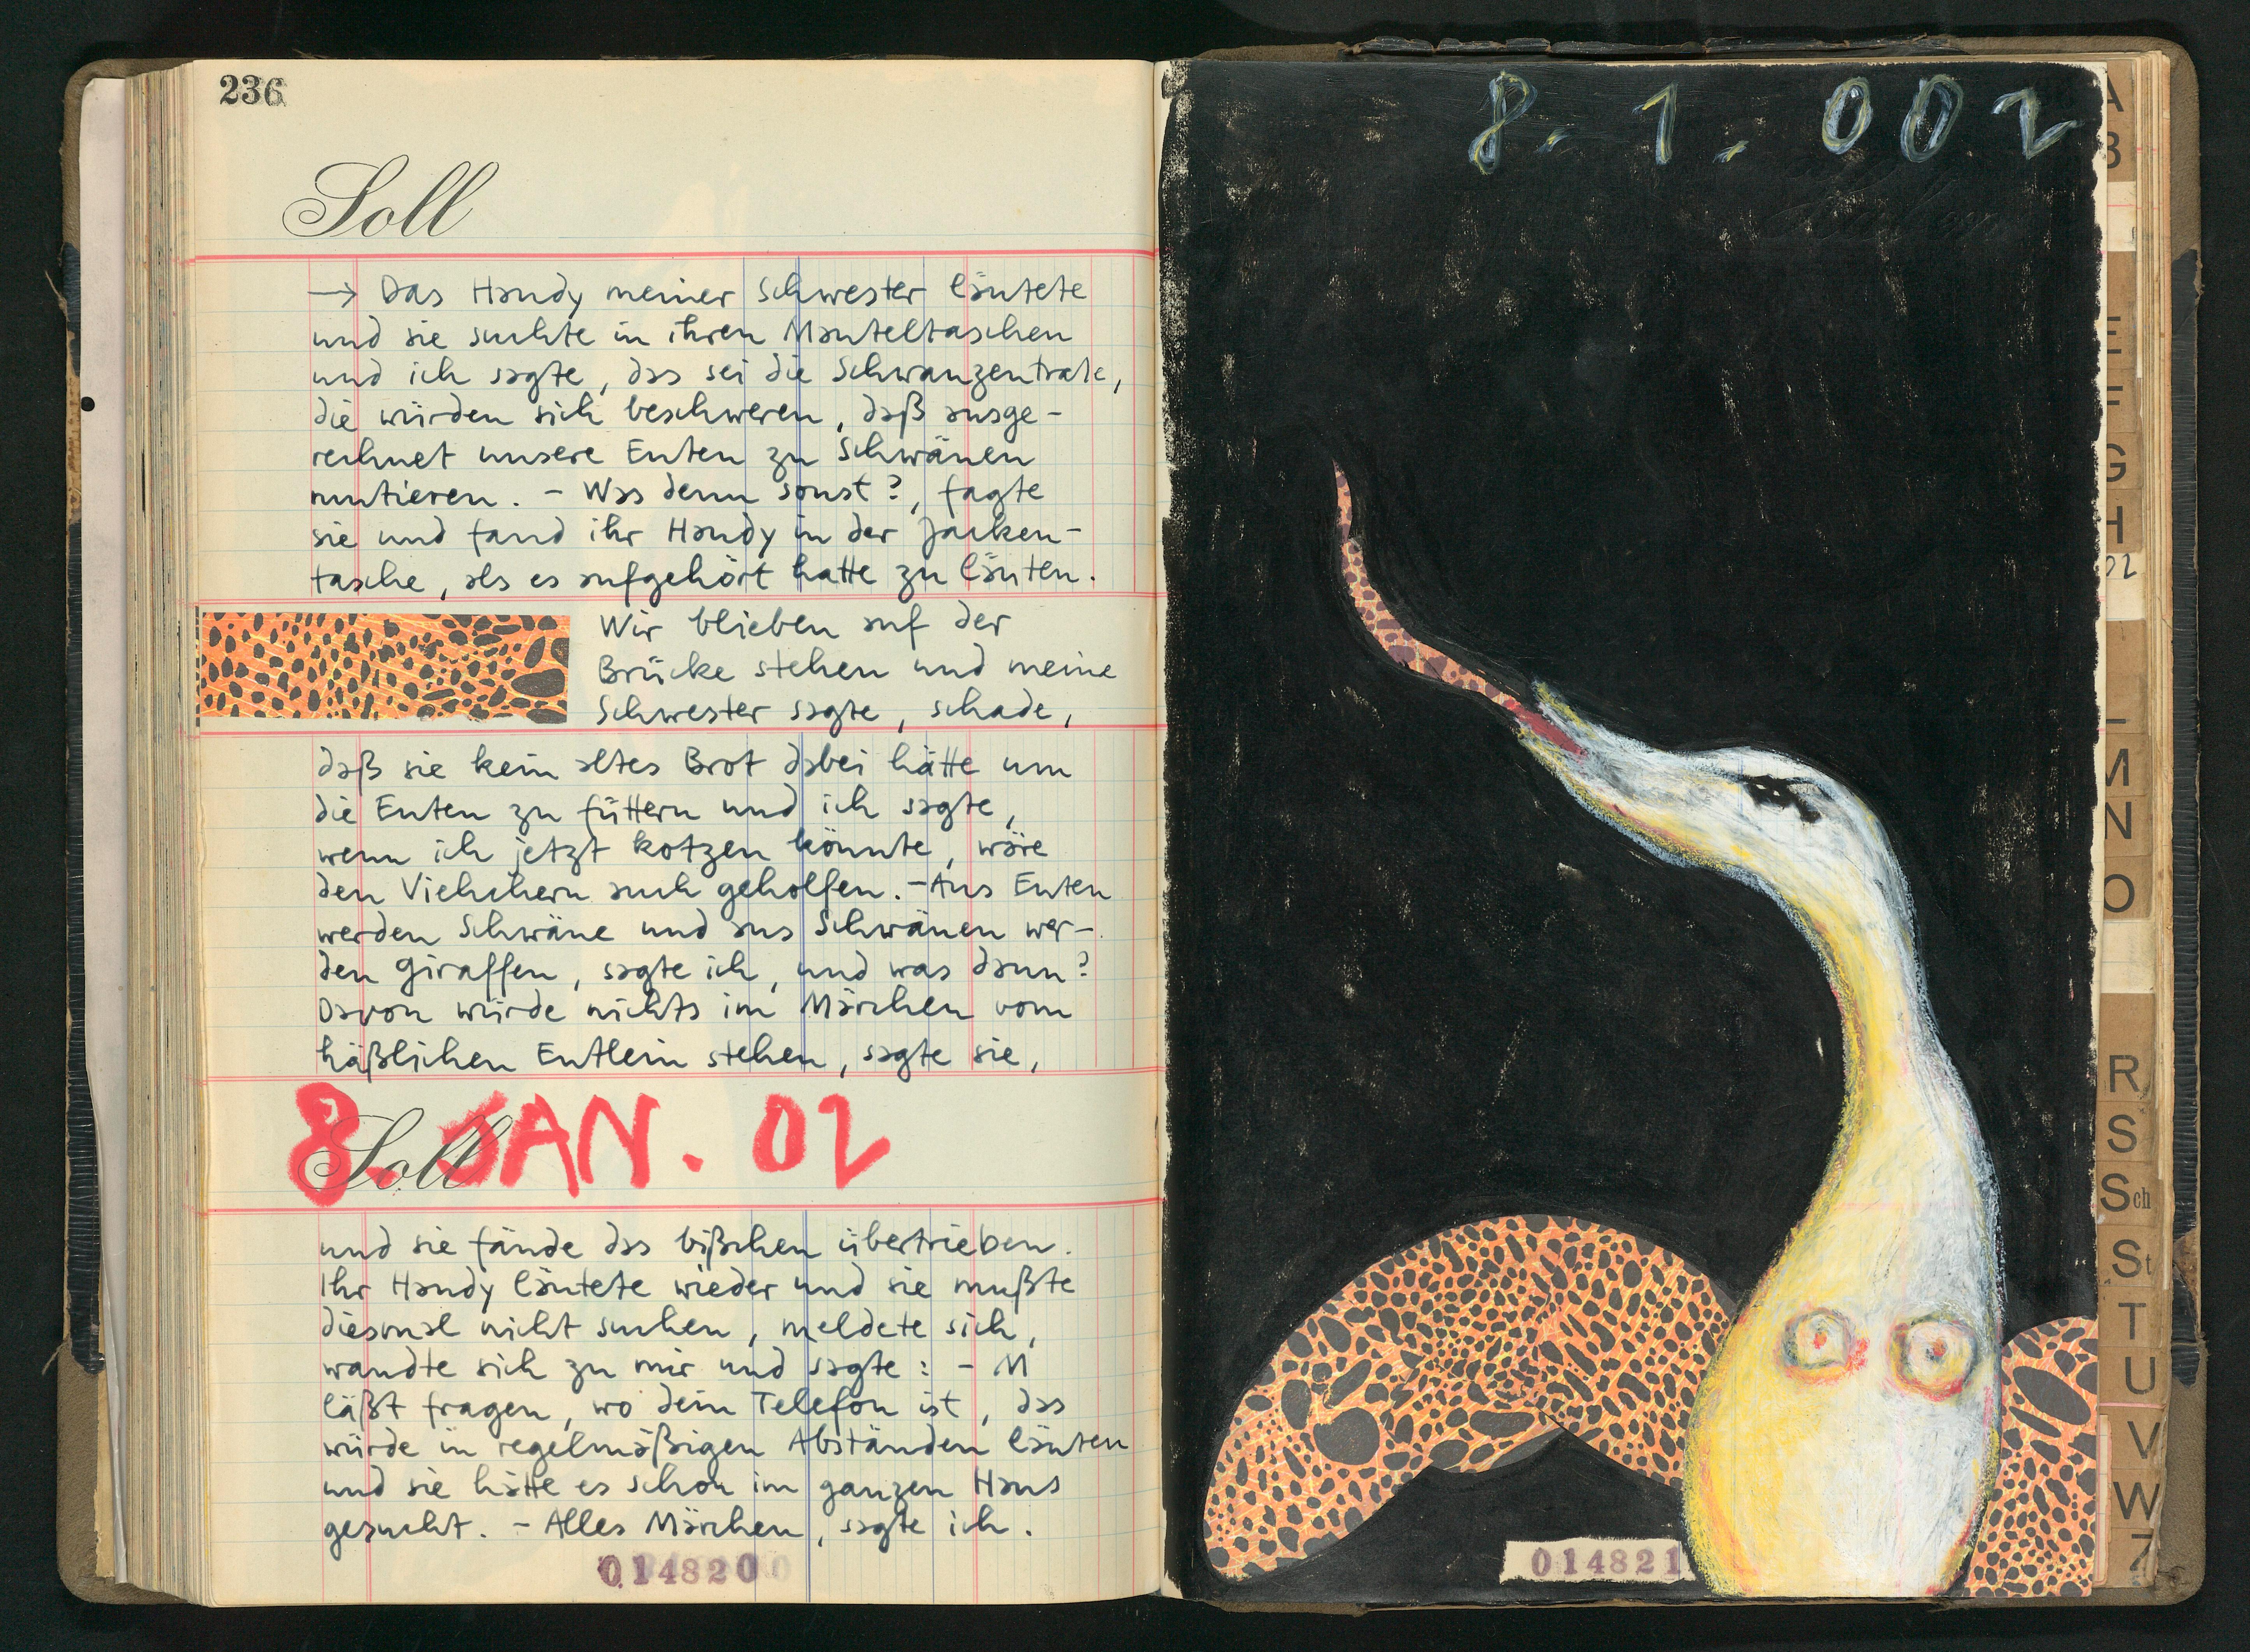 236
Soll
→ Das Handy meiner Schwester läutete
und sie suchte in ihren Manteltaschen
und ich sagte, das sei die Schwanzentrale,
die würden sich beschweren, daß ausge-
rechnet unsere Enten zu Schwänen
mutieren. - Was denn sonst?, sagte
sie und fand ihr Handy in der Jacken-
tasche, als es aufgehört hatte zu läuten.
Wir blieben auf der
Brücke stehen und meine
Schwester sagte, schade,
daß sie kein altes Brot dabei hätte um
die Enten zu füttern und ich sagte,
wenn ich jetzt kotzen könnte, wäre
den Viehchern auch geholfen. - Aus Enten
werden Schwäne und aus Schwänen wer-
den Giraffen, sagte ich, und was dann?
Davon würde nichts im Märchen vom
häßlichen Entlein stehen, sagte sie,
8. JAN. 02
Soll
und sie fände das bißchen übertrieben.
Ihr Handy läutete wieder und sie mußte
diesmal nicht suchen, meldete sich,
wandte sich zu mir und sagte: - M
läßt fragen, wo dein Telefon ist, das
würde in regelmäßigen Abständen läuten
und sie hätte es schon im ganzen Haus
gesucht. - Alles Märchen, sagte ich.
014820
8. 1. 002
014821
A
B
E
F
G
H
02
L
M
N
O
R
S
Sch
St
T
U
V
W
Z